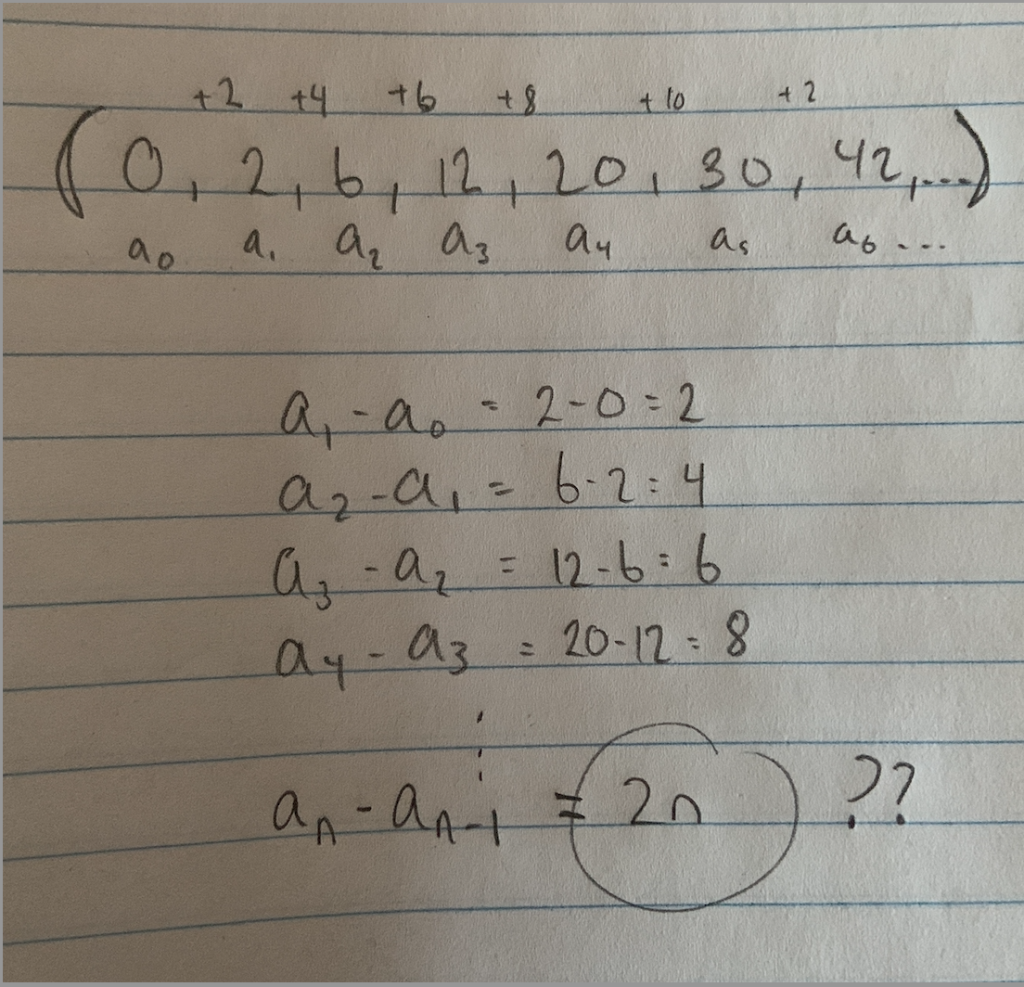 +2 +4 +6 +8 +10 +2
(0, 2, 6, 12, 20, 30, 42,...)
a₀ a₁ a₂ a₃ a₄ a₅ a₆ ...
a₁ - a₀ = 2-0 = 2
a₂ - a₁ = 6-2 = 4
a₃ - a₂ = 12-6 = 6
a₄ - a₃ = 20-12 = 8
⋮
aₙ - aₙ₋₁ = 2n ??